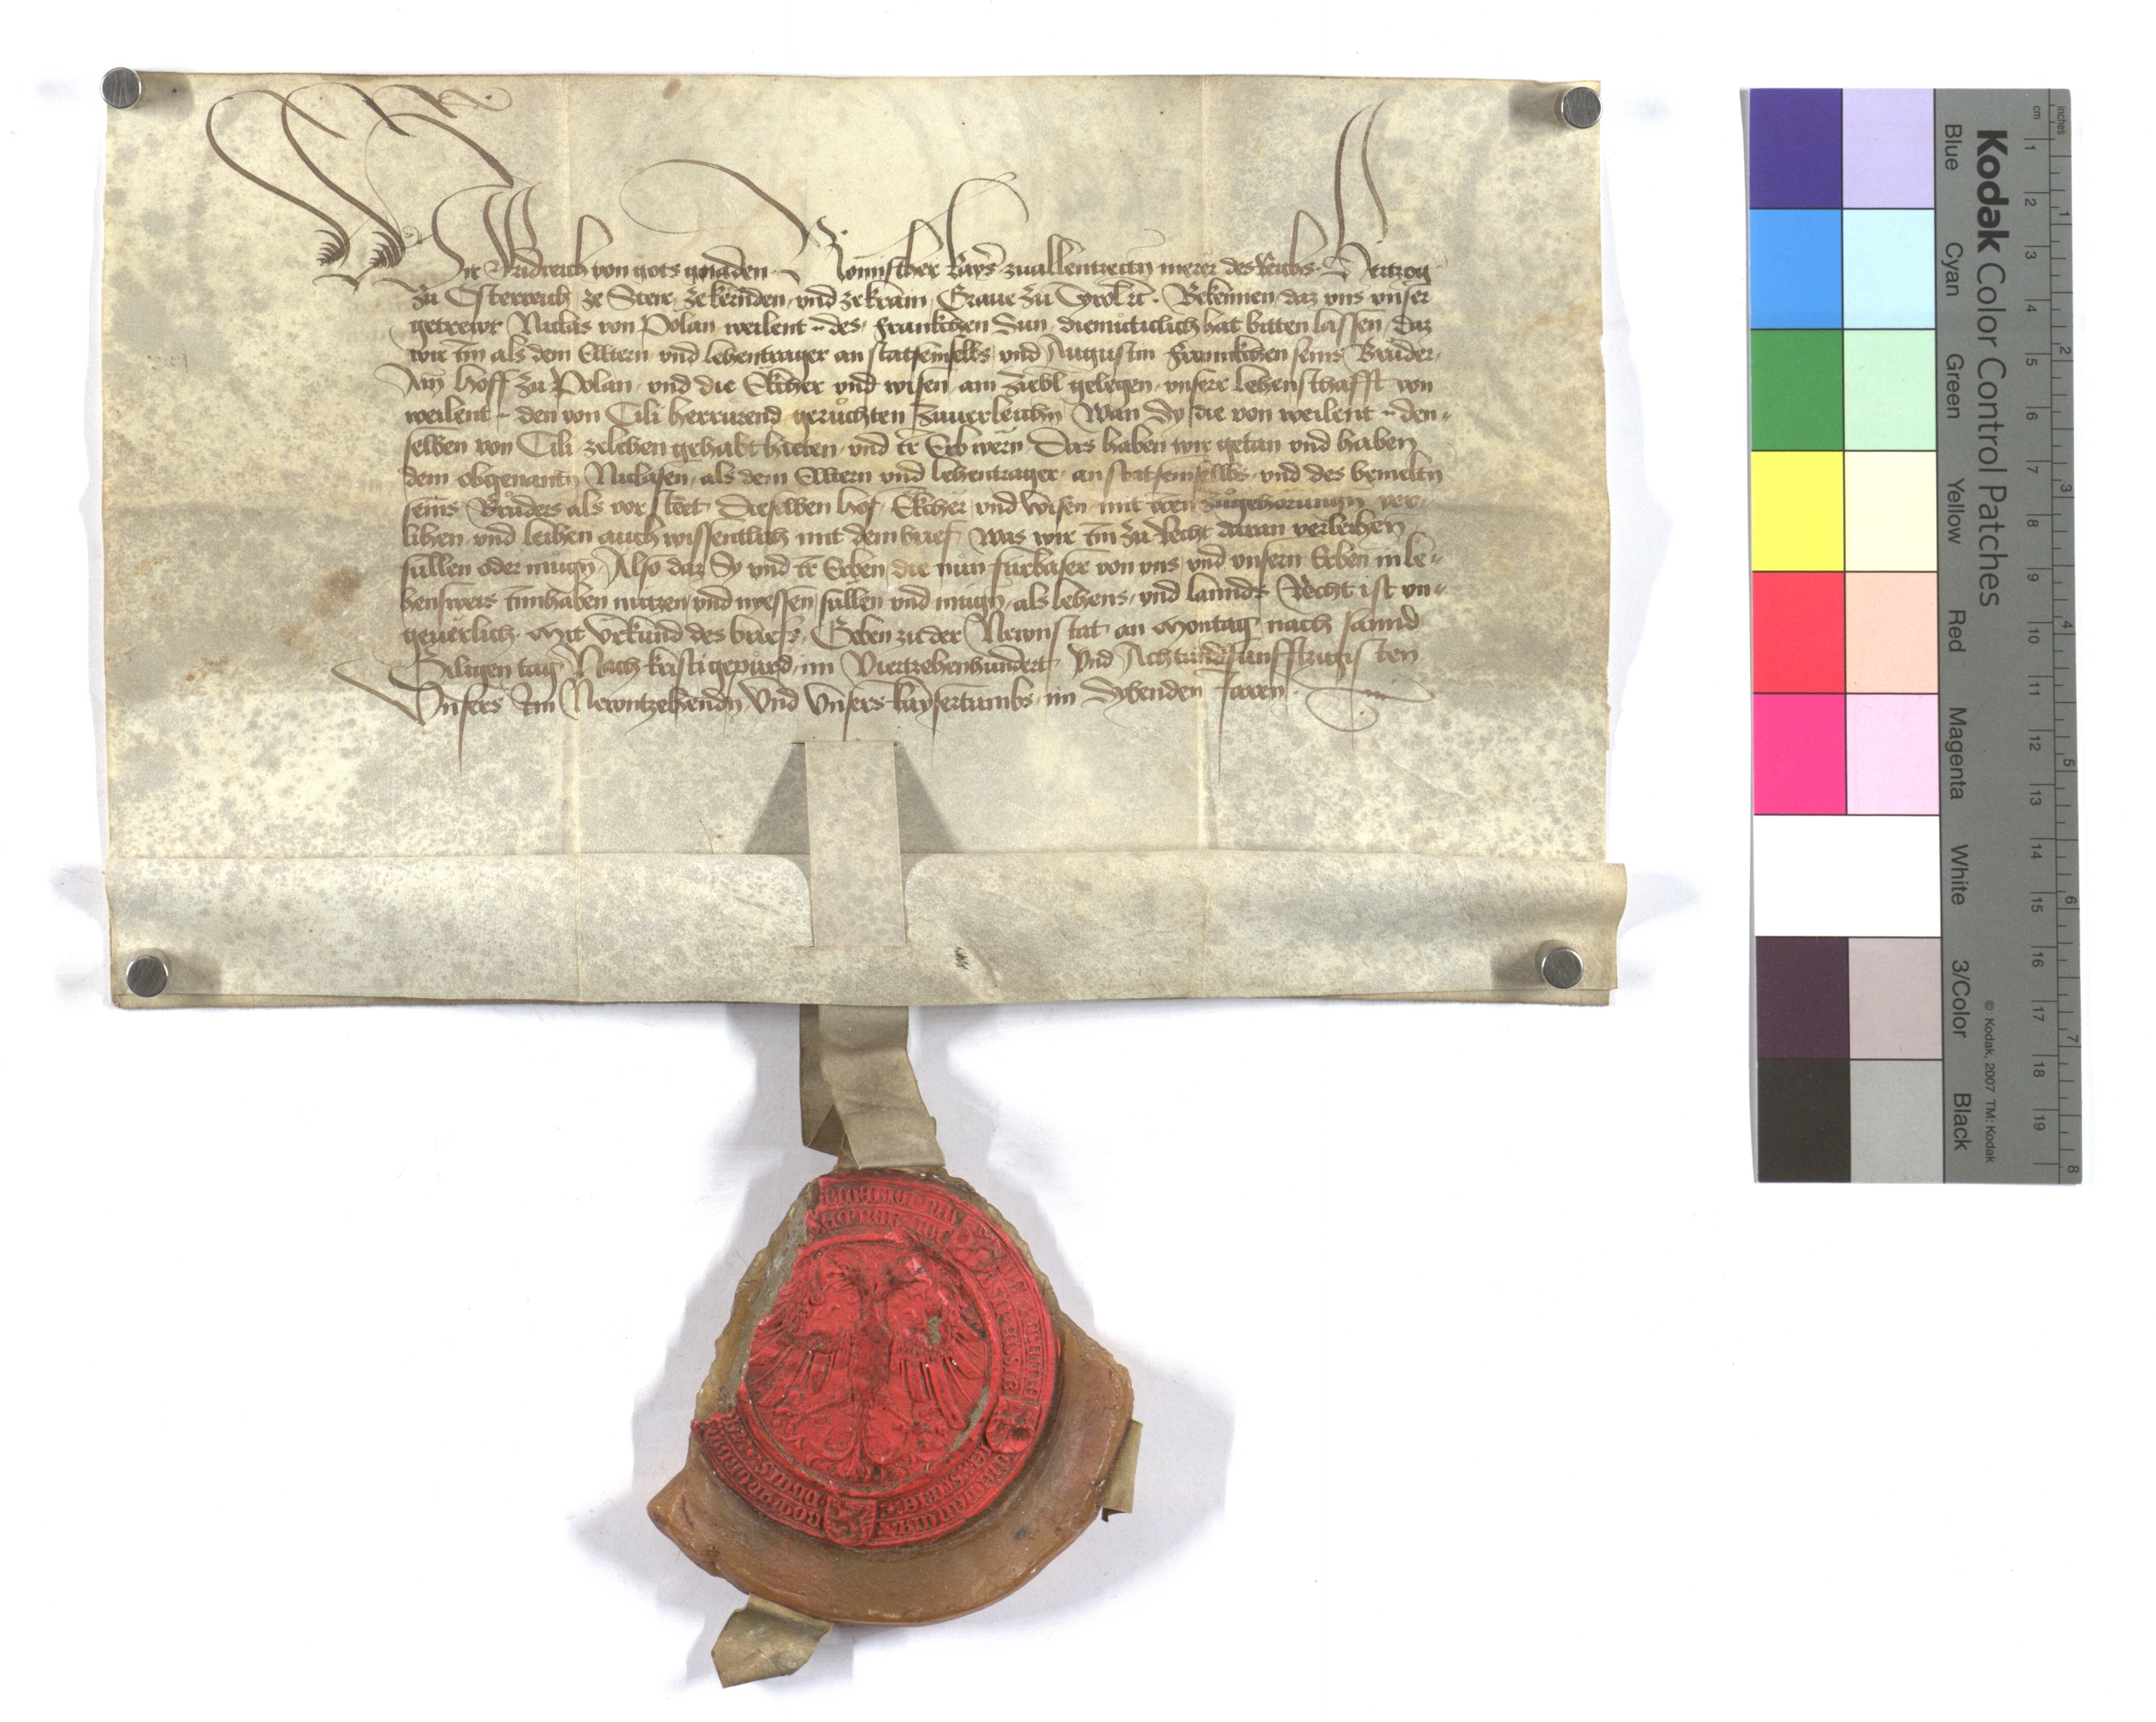 Wir Fridreich von gots gnaden Römischer kayser zuallentzeitn merer des Reichs Hertzog
zu Österreich ze Steir ze kernden vnd ze krain Graue zu Tyrol etc. Bekennen daz vns vnser
getrewr Niclas von Polan weilent des Frankchen Sun diemuticlich hat bitten lassen daz
wir im als dem Elltern vnd lehentrager an stat sein selbs vnd Augustin Frannkchen seins Bruder
Ain hoff zu Polan vnd die Ekcher vnd wisen am gelegen vnserr lehenschafft von
weilent den von Cili herrurend geruchten zuuerleichn Wan Sy die von weilent den
selben von Cili zelehen gehabt hieten vnd ir Erb wern Das haben wir getan vnd haben
dem obgenantn Niclasen als dem Elltern vnd lehentrager an stat sein selbs vnd des bemeltn
seins Bruders als vor steet Dieselben hof Ekcher vnd wisen mit iren zugehorungn ver-
lihen vnd leihen auch wissentlich mit dem brief Was wir im zu Recht daran verleihen
sullen oder mugn Also daz Sy vnd ir Erben die nun furbaser von vns vnd vnsern Erben in le-
hensweis innhaben nutzen vnd nyessen sullen vnd mugn als lehens vnd lannds Recht ist vn-
geuerlich Mit Vrkund des briefs Geben zu der Newnstat an Montag nach sannd
Giligen tag Nach kristi gepurd im Viertzehenhundert Vnd Achtundfunfftzigisten
Vnsers Im Newntzehendn Vnd Vnsers kaysertumbs im Sybenden Jaren
Kodak Color Control Patches
Blue Cyan Green Yellow Red Magenta White 3/Color Black
© Kodak, 2007 TM: Kodak
inches
1 2 3 4 5 6 7 8
cm
1 2 3 4 5 6 7 8 9 10 11 12 13 14 15 16 17 18 19